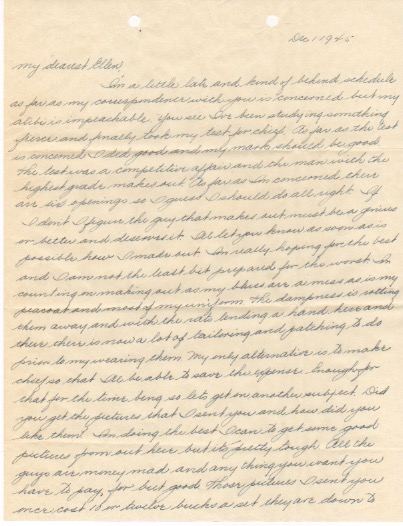 Dec 1 1945
My dearest Ellen,
I'm a little late and kind of behind schedule
as far as my correspondence with you is concerned but my
alibi is impeachable you see I've been studying something
fierce and finally took my test for chief. As far as the test
is concerned I did good and my mark should be good.
The test was a competitive affair and the man with the
highest grade makes out. As far as I'm concerned their
are six openings so I guess I should do all right. If
I don't I figure the guy that makes out must be a genius
or better and deserves it. I'll let you know as soon as is
possible how I made out. I'm really hoping for the best
and I am not the least bit prepared for the worst. I'm
counting on making out as my blues are a mess as is my
peacoat and most of my uniform. The dampness is rotting
them away and with the rats lending a hand here and
their their is now a lot of tailoring and patching to do
prior to my wearing them. My only alternative is to make
chief so that I'll be able to save the expense. Enough for
that for the time being so lets get on another subject. Did
you get the pictures that I sent you and how did you
like them. I'm doing the best I can to get some good
pictures from out here but its pretty tough. All the
guys are money mad and any thing you want you
have to pay for but good. Those pictures I sent you
once cost 10 or twelve bucks a set they are down to